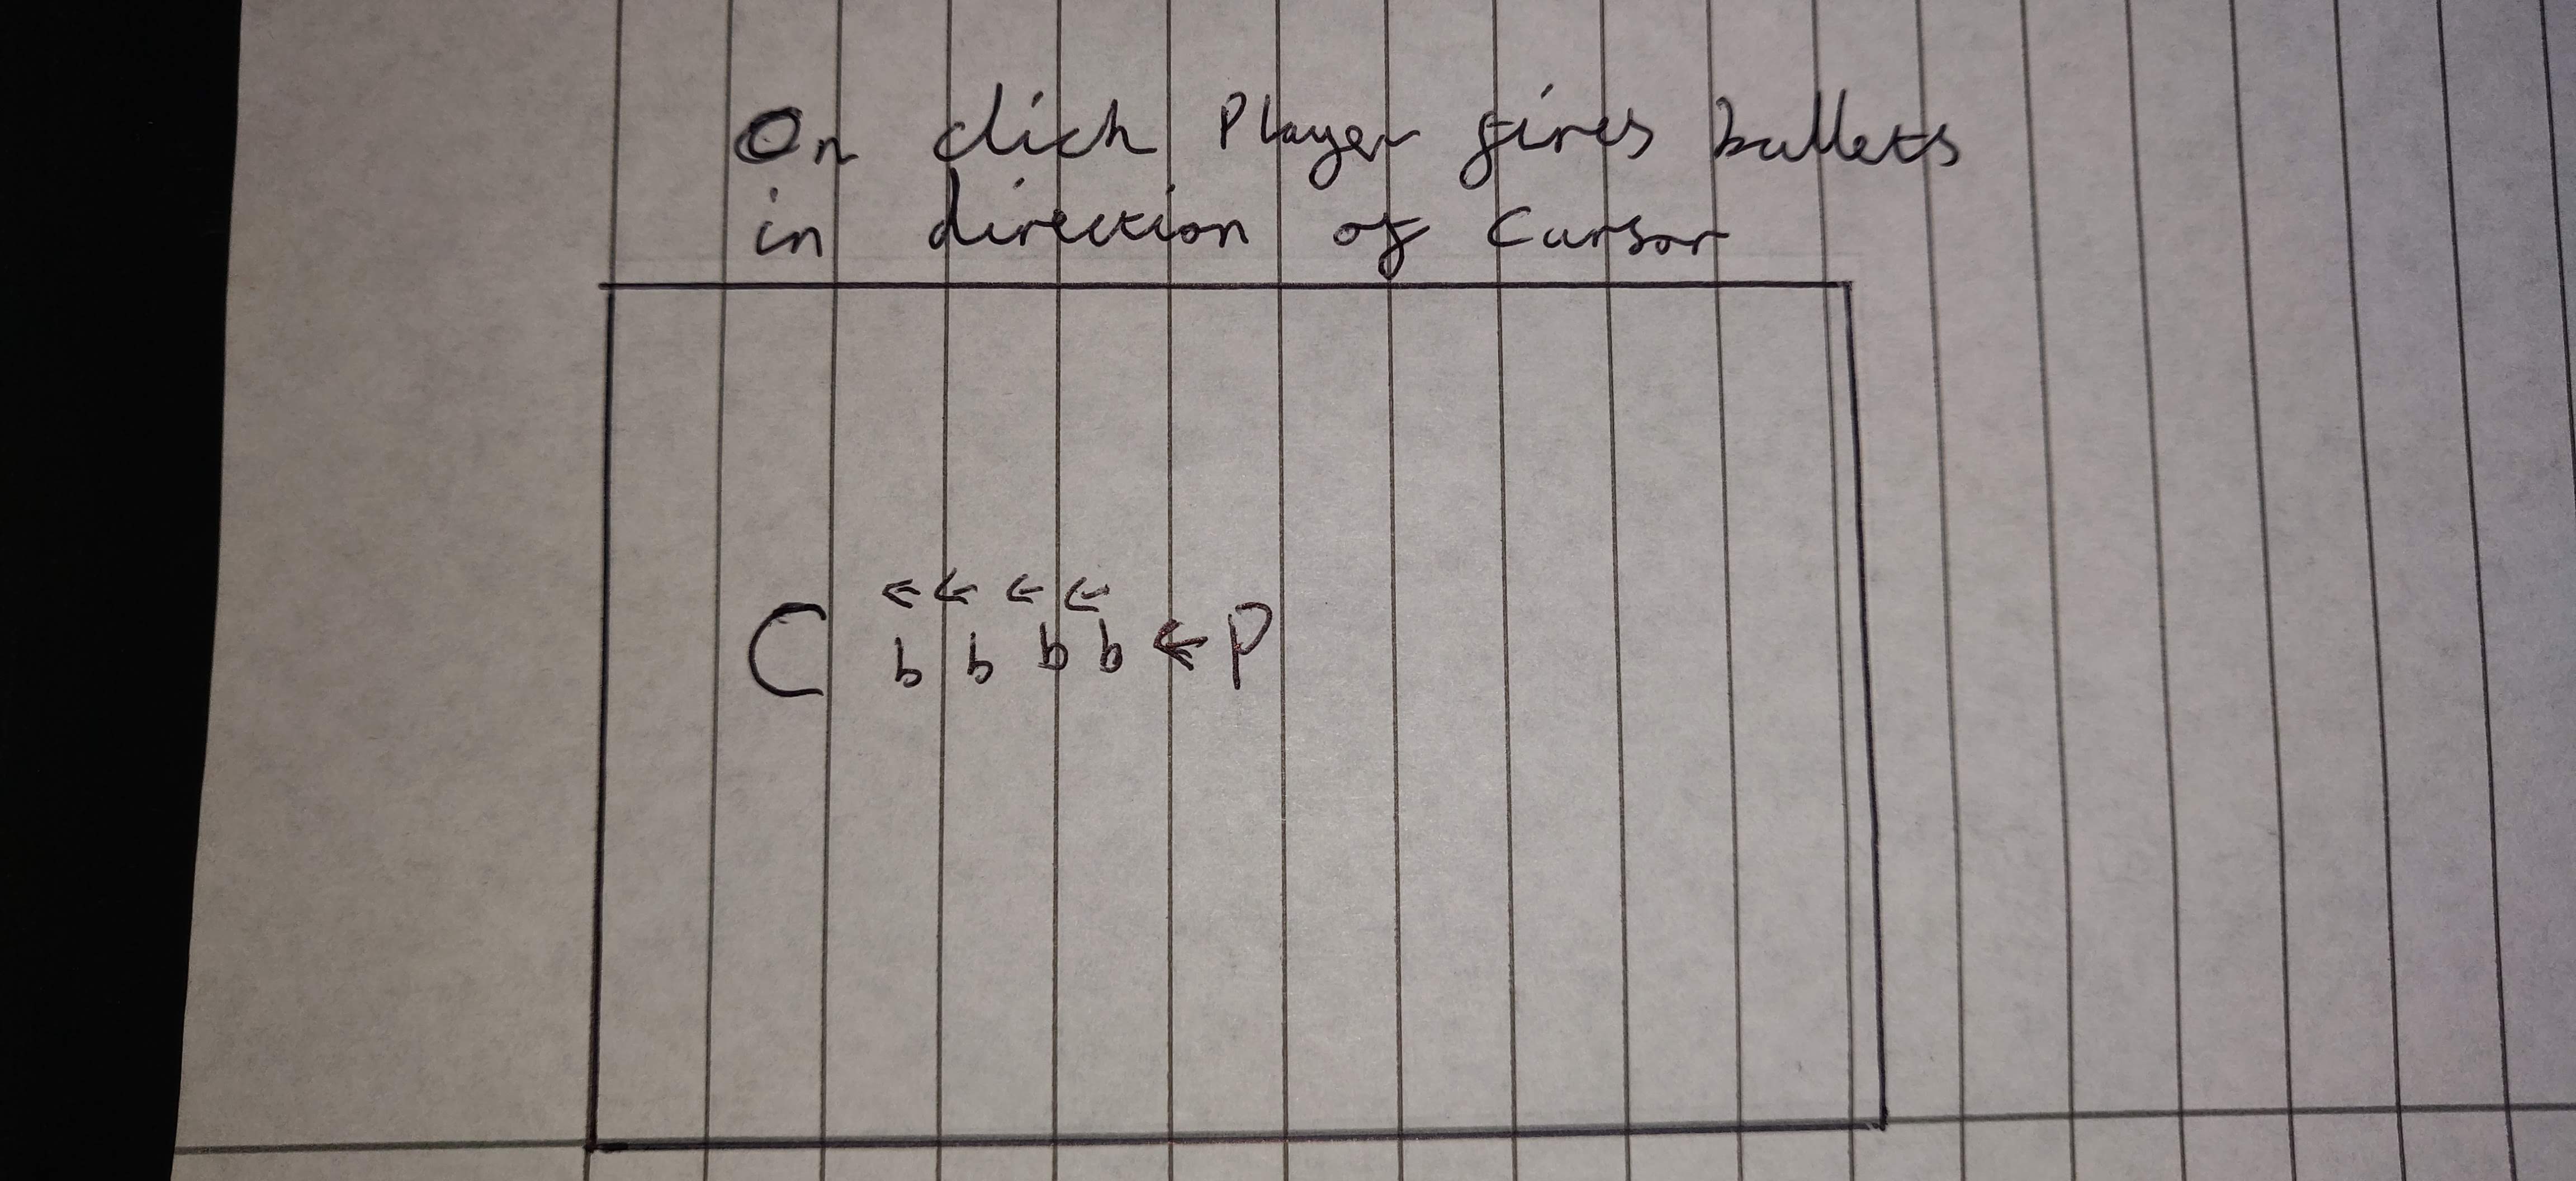 On click Player fires bullets
in direction of Cursor
← ← ← ←
C b b b b ← P